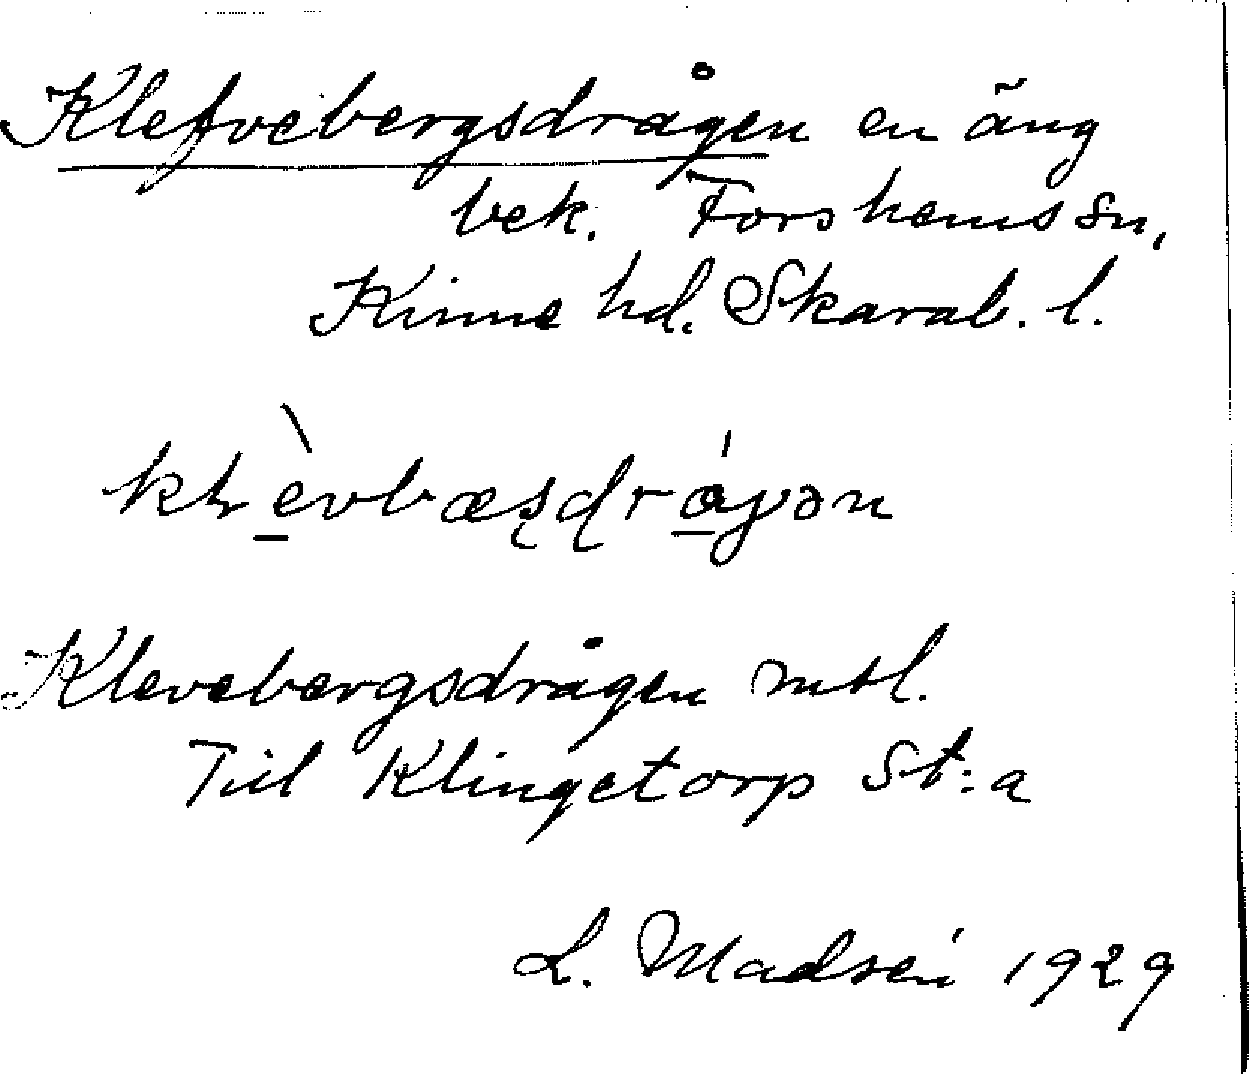 Klefvebergsdrågen en äng
bek. Forshems sn,
Kinne hd. Skarab. l.
Klevebergsdrågen mtl.
Till Klingetorp St:a
L. Madsén 1929